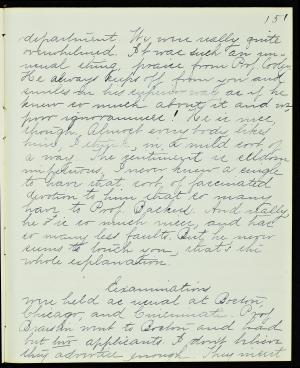 151
department. We were really quite
overwhelmed. It was such an un-
usual thing, praise from Prof.
He always keeps off from you and
smiles in his way as if he
knew so much about it and we
poor ignoramuses! He is nice,
though. Almost everybody likes
him, I think, in a mild sort of
a way. The sentiment is seldom
I never knew a single
to have that sort of fascinated
devotion to him that so many
have to Prof. And really
he is so much nicer, and has
so many less faults. But he never
seems to touch you, that's the
whole explanation.
Examinations
were held as usual at Boston,
Chicago, and Cincinnati. Prof
went to Boston and had
but two applicants. I don't believe
they advertise enough. They must